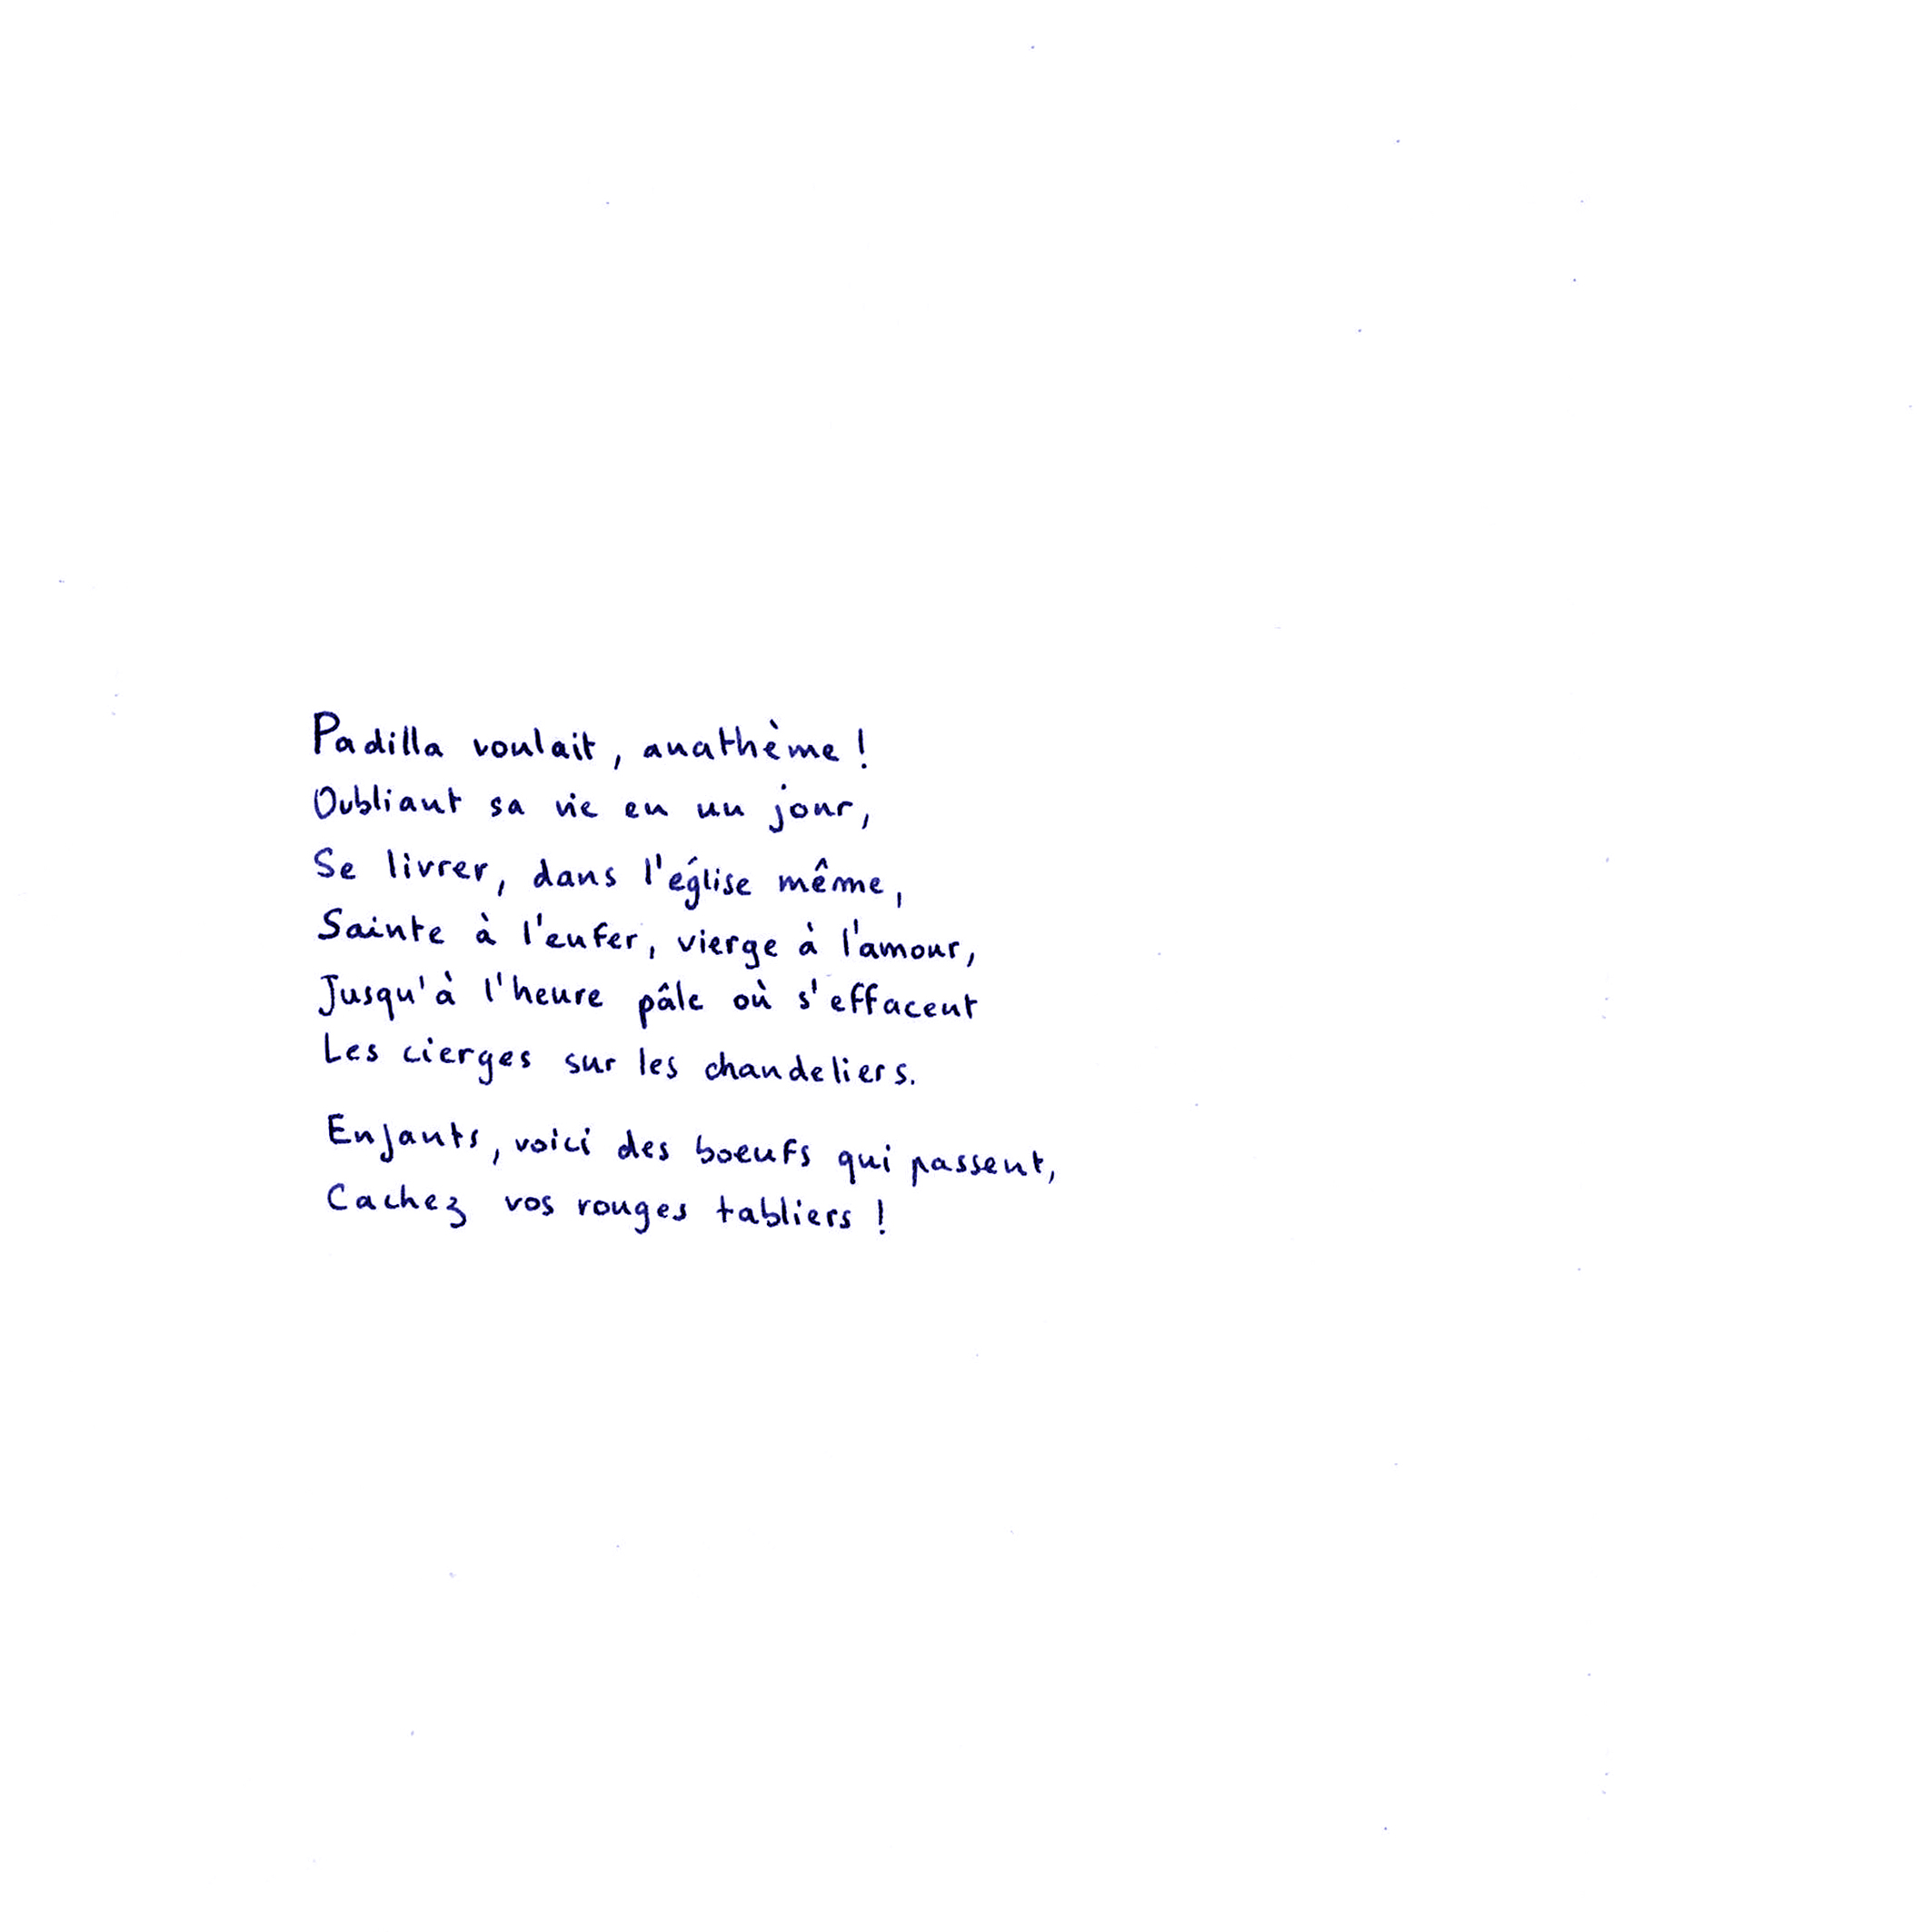 Padilla voulait, anathème !
Oubliant sa vie en un jour,
Se livrer, dans l'église même,
Sainte à l'enfer, vierge à l'amour,
Jusqu'à l'heure pâle où s'effacent
Les cierges sur les chandeliers.
Enfants, voici des boeufs qui passent,
Cachez vos rouges tabliers !